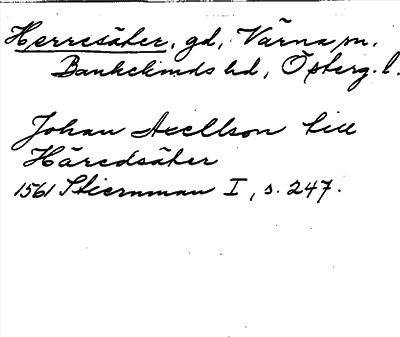 Herresäter, gd, Värna sn,
Bankekinds hd, Österg. l.
Johan Axellson till
Häredsäter
1561 Stiernman I, s. 247.